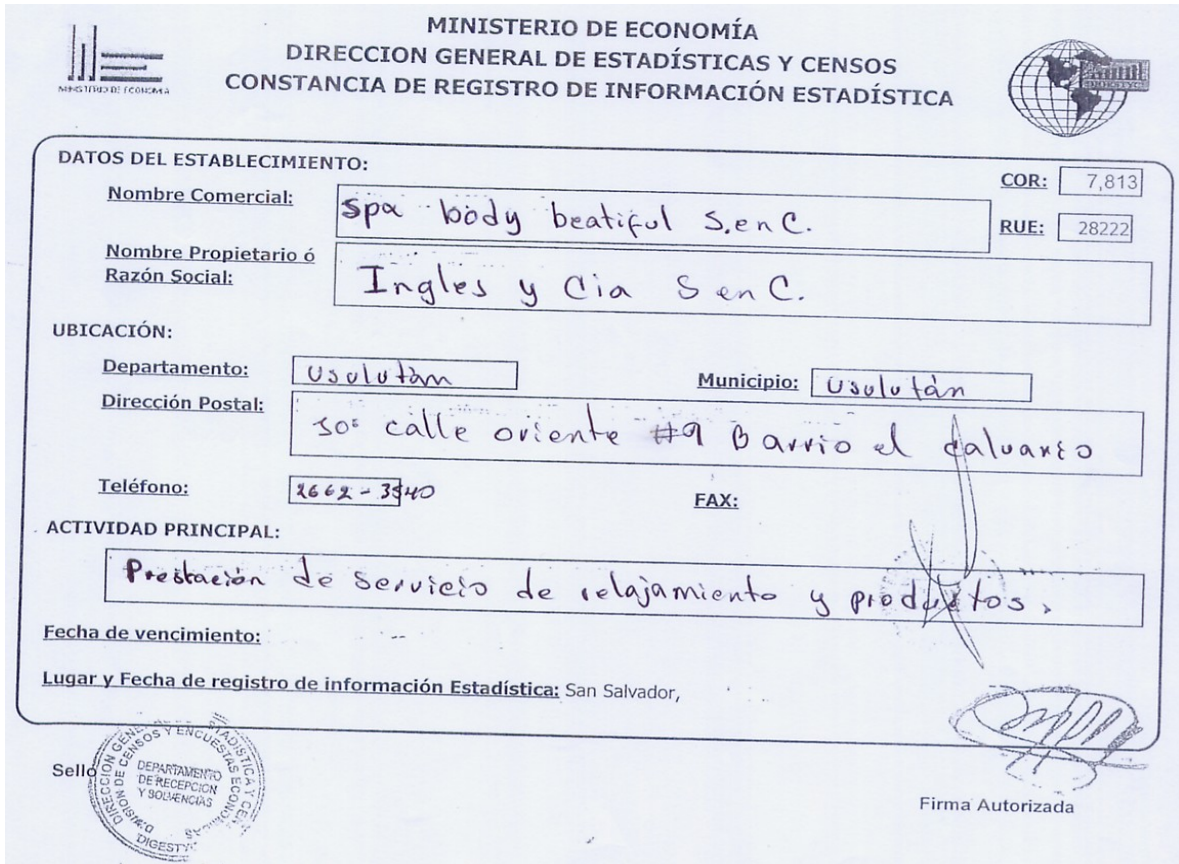 MINISTERIO DE ECONOMÍA
DIRECCION GENERAL DE ESTADÍSTICAS Y CENSOS
CONSTANCIA DE REGISTRO DE INFORMACIÓN ESTADÍSTICA
MINISTERIO DE ECONOMIA
DATOS DEL ESTABLECIMIENTO:
COR: 7,813
Nombre Comercial: Spa body beatiful S.en C.
RUE: 28222
Nombre Propietario ó
Razón Social: Ingles y Cia S en C.
UBICACIÓN:
Departamento: Usulután
Municipio: Usulután
Dirección Postal: 10ª calle oriente #9 Barrio el calvario
Teléfono: 2662-3540
FAX:
ACTIVIDAD PRINCIPAL:
Prestación de servicio de relajamiento y productos.
Fecha de vencimiento: --
Lugar y Fecha de registro de información Estadística: San Salvador,
Sello
DEPARTAMENTO
DE RECEPCION
Y SOLVENCIAS
Firma Autorizada